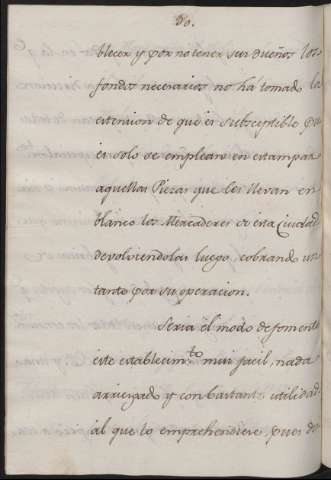 30.
blecer y por no tener sus dueños los
fondos necesarios no há tomado la
extension de que és subsceptible pues
és solo se emplean en estampar
aquellas Piezas que les llevan en
blanco los Mercaderes de esta Ciudad
devolviendolas luego, cobrando un
tanto por su operacion.
Seria el modo de fomentar
este establecim.to mui facil, nada
arriesgado y con bastante utilidad
al que lo emprehendiere, pues de